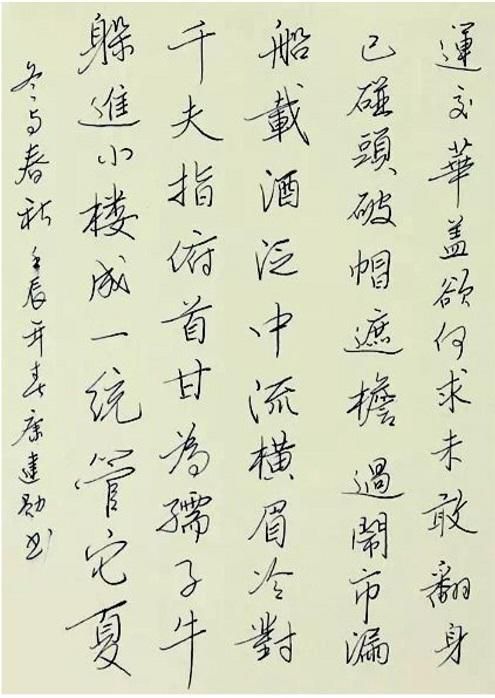 運交華盖欲何求未敢翻身
已碰頭破帽遮檐過鬧市漏
船載酒泛中流橫眉冷對
千夫指俯首甘為孺子牛
躲進小楼成一统管它夏
冬与春秋 壬辰开春康建勋书